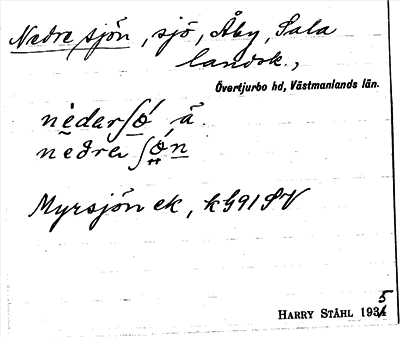 Nedre sjön, sjö, Åby, Sala
landsk.,
Övertjurbo hd, Västmanlands län.
nèdarʃǿ ä.
nedra ʃǿn
Myrsjön ek, kG91SV
HARRY STÅHL 1935